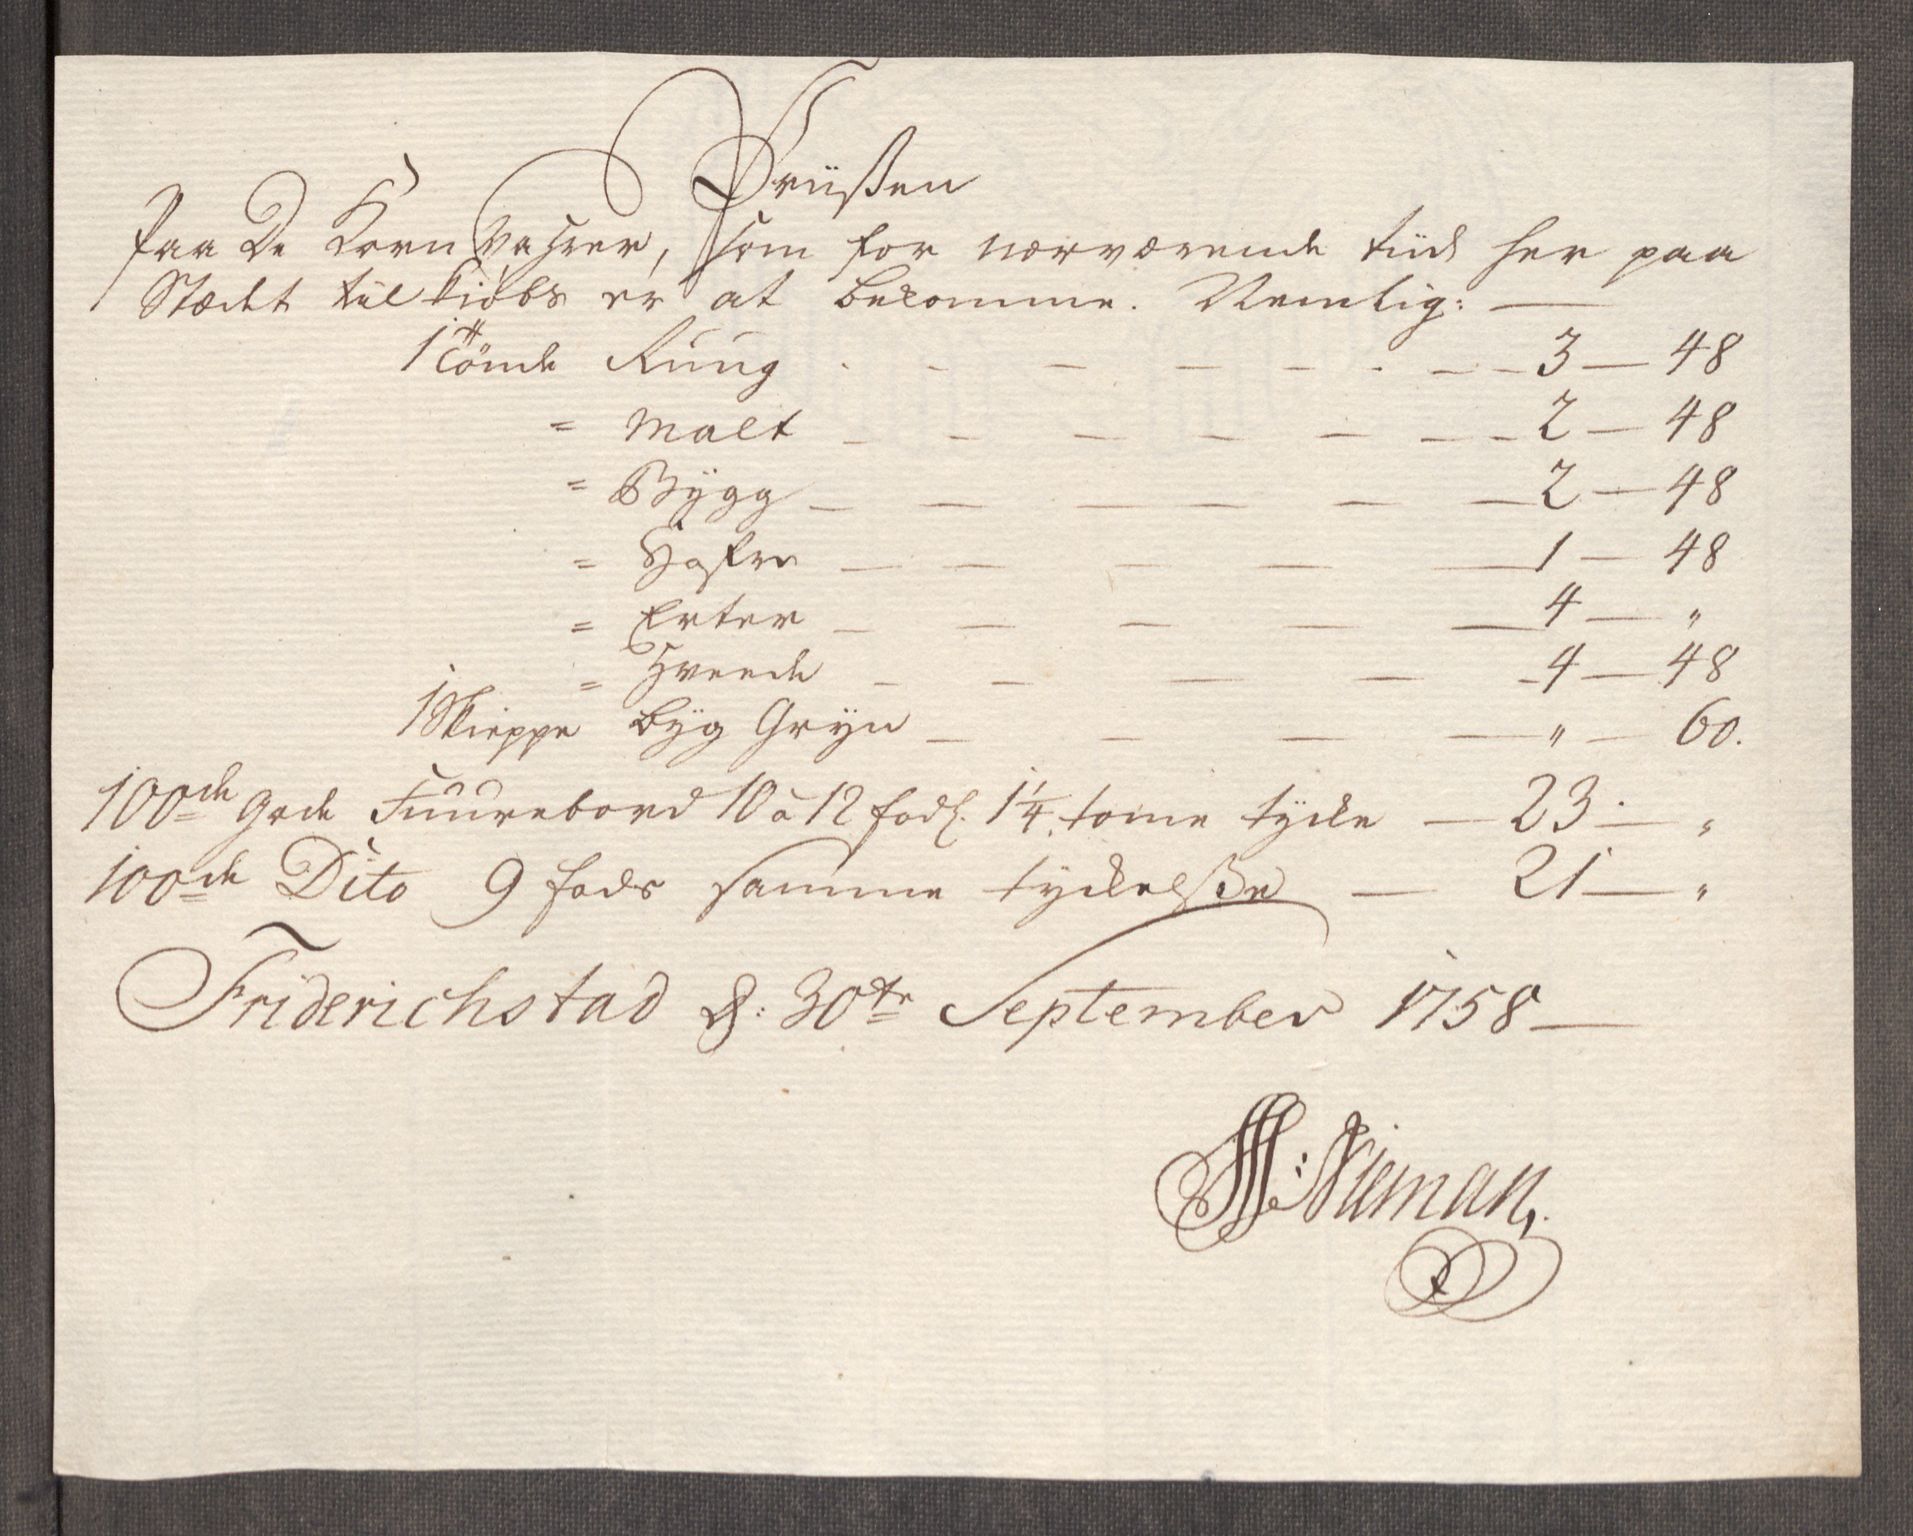 Priißen
Paa De Korn Vahrer, som for nærværende tiid her paa
Stædet til Kiøbs er at bekomme. Nemlig:
1 Tønde Ruug - - - - - - - 3 — 48
" Malt - - - - - - - 2 — 48
" Bÿgg - - - - - - 2 — 48
" Hafre - - - - - 1 — 48
" Erter - - - - - 4 — "
" Hveede - - - - - 4 — 48
1 Skieppe bÿg Grÿn - - - - " — 60.
100de gode Fuurebord 10 a 12 fod. 1 1/4 tome tycke — 23 — "
100de Dito 9 fods samme tyckelße — 21 — "
Friderichstad d: 30te September 1758 —
Nieman